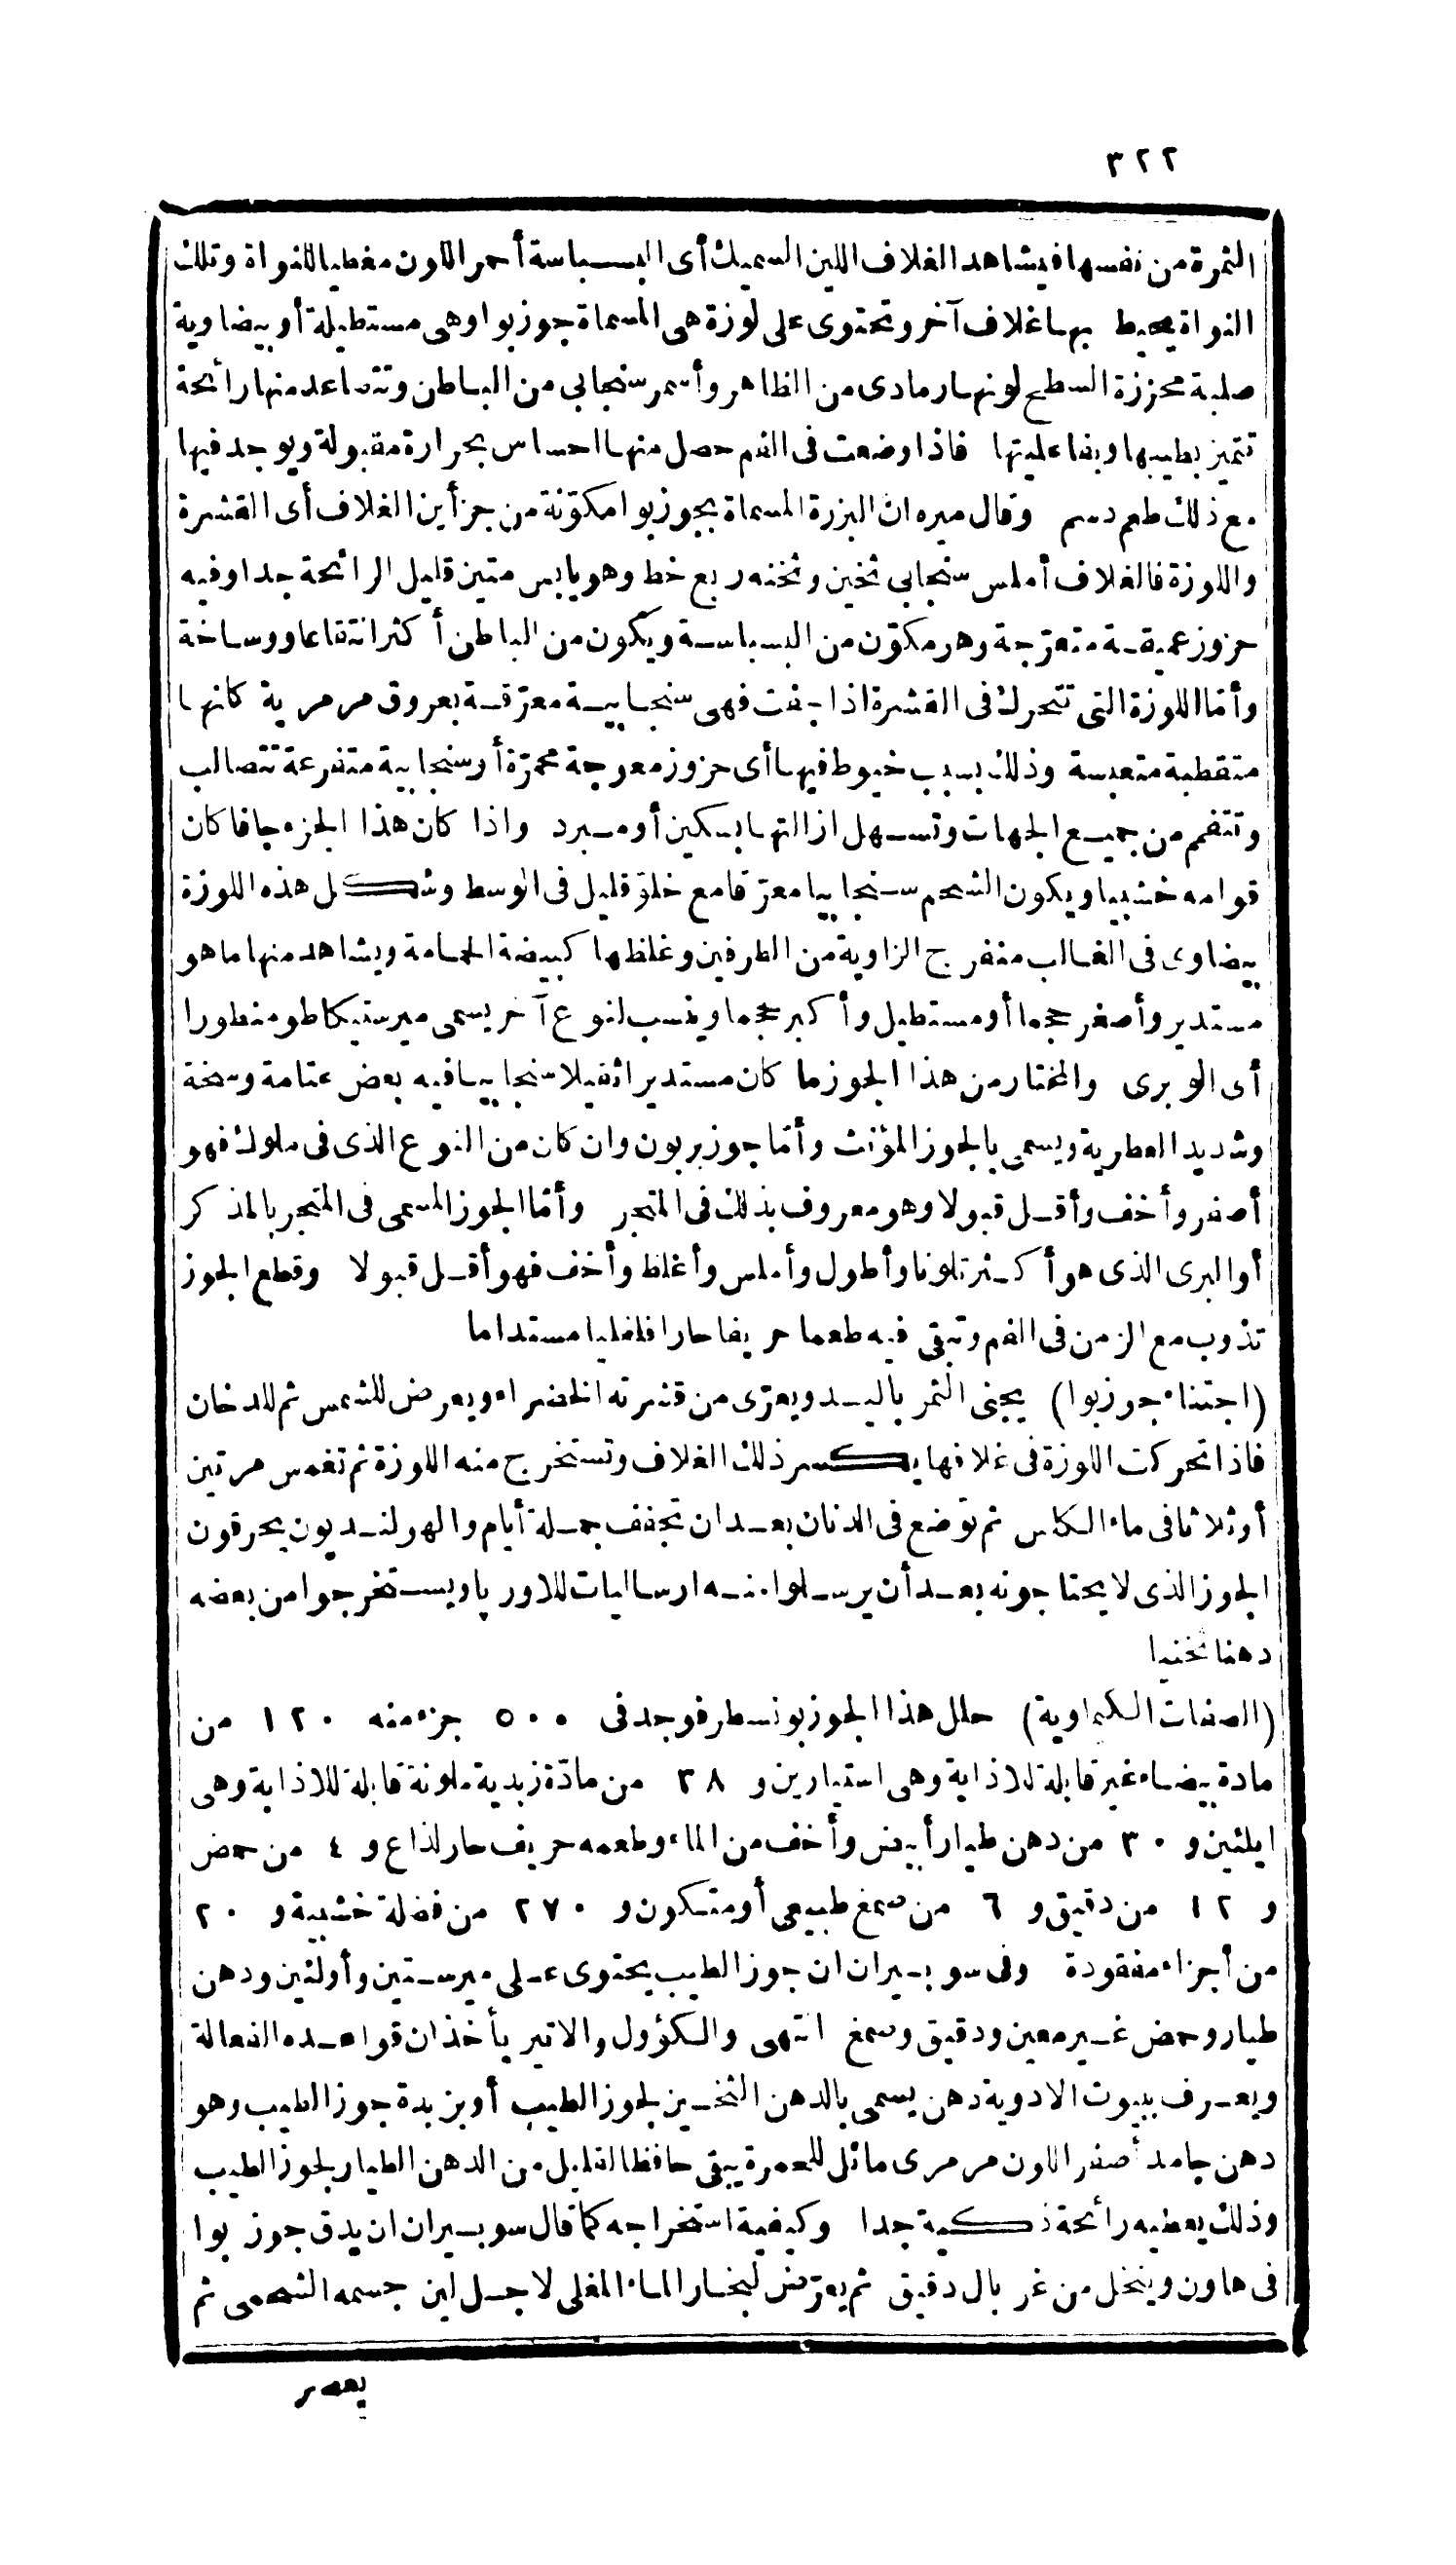 ٣٢٢
الثمرة من نفسها فيشاهد الغلاف اللين السميك أى البسباسة أحمر اللون مغطيا للنواة وتلك
النواة يحيط بها غلاف آخر وتحتوى على لوزة هى المسماة جوزبوا وهى مستطيلة أو بيضاوية
صلبة محززة السطح لونها رمادى من الظاهر وأسمر سنجابى من الباطن وتتصاعد منها رائحة
تتميز بطيبها وبفاعليتها فاذا وضعت فى الفم حصل منها احساس بحرارة مقبولة ويوجد فيها
مع ذلك طعم دسم وقال ميره ان البزرة المسماة بجوزبوا مكوّنة من جزأين الغلاف أى القشرة
واللوزة فالغلاف أملس سنجابى ثخين وثخنه ربع خط وهو يابس متين قليل الرائحة جدا وفيه
حزوز عميقة متعرّجة وهر مكوّن من البسباسة ويكون من الباطن أكثر انتقاعا ووساخة
وأمّا اللوزة التى تتحرك فى القشرة اذا جفت فهى سنجابية معرّقة بعروق مرمرية كانها
متقطبة متعبسة وذلك بسبب خيوط فيها أى حزوز معوجة محمرّة أو سنجابية متفرعة تتصالب
وتتفمم من جميع الجهات وتسهل ازالتها بسكين أو مبرد واذا كان هذا الجزء جافا كان
قوامه خشبيا ويكون الشحم سنجابيا معرّقا مع خلوّ قليل فى الوسط وشكل هذه اللوزة
بيضاوى فى الغالب منفرج الزاوية من الطرفين وغلظها كبيضة الحمامة ويشاهد منها ما هو
مستدير وأصغر حجما أو مستطيل وأكبر حجما وينسب لنوع آخر يسمى ميرستيكا طومنطورا
أى الوبرى والمختار من هذا الجوز ما كان مستديرا ثقيلا سنجابيا فيه بعض عتامة وسخة
وشديد العطرية ويسمى بالجوز المؤنث وأمّا جوز بربون وان كان من النوع الذى فى ملوك فهو
أصفر وأخف وأقل قبولا وهو معروف بذلك فى المتجر وأمّا الجوز المسمى فى المتجر بالمذكر
أو البرى الذى هو أكثر تلونا وأطول وأملس وأغلظ وأخف فهو أقل قبولا وقطع الجوز
تذوب مع الزمن فى الفم وتبقى فيه طعما حريفا حارا فلفليا مستداما
(اجتناء جوزبوا) يجنى الثمر باليد ويعرّى من قشرته الخضراء ويعرض للشمس ثم للدخان
فاذا تحركت اللوزة فى غلافها يكسر ذلك الغلاف وتستخرج منه اللوزة ثم تغمس مرتين
أو ثلاثا فى ماء الكلس ثم توضع فى الدنان بعد ان تجفف جملة أيام والهولنديون يحرقون
الجوز الذى لا يحتاجونه بعد أن يرسلوا منه ارساليات للاورپا ويستخرجوا من بعضه
دهنا ثخنيا
(الصفات الكيماوية) حلل هذا الجوز بونسطر فوجد فى ٥٠٠ جزء منه ١٢٠ من
مادة بيضاء غير قابلة للاذابة وهى استيارين و ٣٨ من مادّة زبدية ملونة قابلة للاذابة وهى
ايلئين و ٣٠ من دهن طيار أبيض وأخف من الماء وطعمه حريف حار لذاع و ٤ من حمض
و ١٢ من دقيق و ٦ من صمغ طبيعى أو متكون و ٢٧٠ من فضلة خشبية و ٢٠
من أجزاء مفقودة وفى سوبيران ان جوز الطيب يحتوى على ميرستين وأولئين ودهن
طيار وحمض غير معين ودقيق وصمغ انتهى والكؤول والاتير يأخذان قواعده الفعالة
ويعرف ببيوت الادوية دهن يسمى بالدهن الثخين لجوز الطيب أو بزبدة جوز الطيب وهو
دهن جامد أصفر اللون مرمرى مائل للحمرة يبقى حافظا لقليل من الدهن الطيار لجوز الطيب
وذلك يعطيه رائحة ذكية جدا وكيفية استخراجه كما قال سوبيران ان يدق جوز بوا
فى هاون وينخل من غربال دقيق ثم يعرّض لبخار الماء المغلى لاجل لين جسمه الشحمى ثم
يعصر